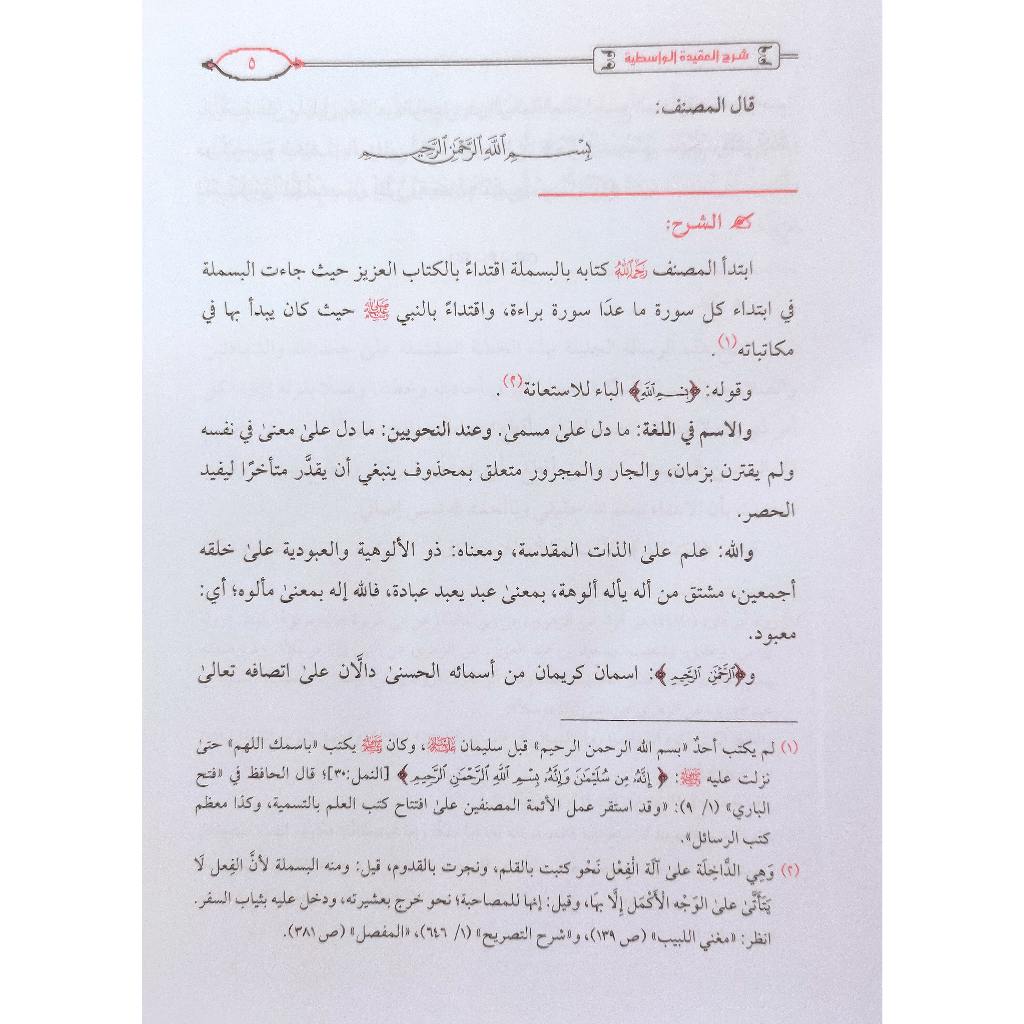 شرح العقيدة الواسطية
٥
قال المصنف:
بِسْمِ اللَّهِ الرَّحْمَٰنِ الرَّحِيمِ
الشرح:
ابتدأ المصنف رَحِمَهُ اللَّهُ كتابه بالبسملة اقتداءً بالكتاب العزيز حيث جاءت البسملة
في ابتداء كل سورة ما عدَا سورة براءة، واقتداءً بالنبي ﷺ حيث كان يبدأ بها في
مكاتباته(١).
وقوله: ﴿بِسْمِ ٱللَّهِ﴾ الباء للاستعانة(٢).
والاسم في اللغة: ما دل علىٰ مسمىٰ. وعند النحويين: ما دل علىٰ معنىٰ في نفسه
ولم يقترن بزمان، والجار والمجرور متعلق بمحذوف ينبغي أن يقدَّر متأخرًا ليفيد
الحصر.
والله: علم علىٰ الذات المقدسة، ومعناه: ذو الألوهية والعبودية علىٰ خلقه
أجمعين، مشتق من أله يأله ألوهة، بمعنىٰ عبد يعبد عبادة، فالله إله بمعنىٰ مألوه؛ أي:
معبود.
و﴿ٱلرَّحْمَٰنِ ٱلرَّحِيمِ﴾: اسمان كريمان من أسمائه الحسنىٰ دالَّان علىٰ اتصافه تعالىٰ
(١) لم يكتب أحدٌ «بسم الله الرحمن الرحيم» قبل سليمان ﷺ، وكان ﷺ يكتب «باسمك اللهم» حتىٰ
نزلت عليه ﷺ: ﴿إِنَّهُۥ مِن سُلَيْمَٰنَ وَإِنَّهُۥ بِسْمِ ٱللَّهِ ٱلرَّحْمَٰنِ ٱلرَّحِيمِ﴾ [النمل:٣٠]؛ قال الحافظ في «فتح
الباري» (١/ ٩): «وقد استقر عمل الأئمة المصنفين علىٰ افتتاح كتب العلم بالتسمية، وكذا معظم
كتب الرسائل».
(٢) وَهِي الدَّاخِلَة علىٰ آلَة الْفِعْل نَحْو كتبت بالقلم، ونجرت بالقدوم، قيل: ومنه البسملة لأنَّ الفِعل لَا
يَتَأَتَّىٰ علىٰ الوَجْه الْأَكْمَل إِلَّا بهَا، وقيل: إنها للمصاحبة؛ نحو خرج بعشيرته، ودخل عليه بثياب السفر.
انظر: «مغني اللبيب» (ص ١٣٩)، و«شرح التصريح» (١/ ٦٤٦)، «المفصل» (ص ٣٨١).